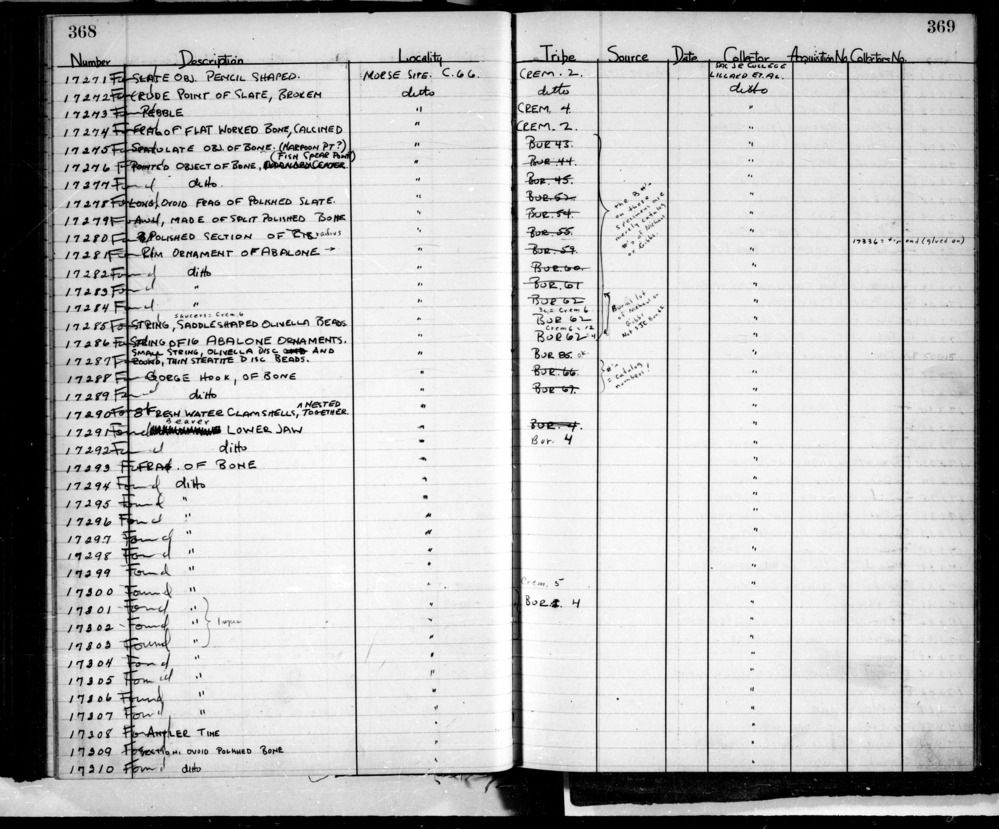 368
369
Number Description Locality Tribe Source Date Collector Acquisition No. Collectors No.
17271 Found SLATE OBJ. PENCIL SHAPED. MORSE SITE. C.66. CREM. 2. SAC JR COLLEGE LILLARD ET. AL.
17272 Found CRUDE POINT OF SLATE, BROKEN ditto ditto ditto
17273 Found PEBBLE " CREM. 4 "
17274 Found FRAG OF FLAT WORKED BONE, CALCINED " CREM. 2. "
17275 Found SPATULATE OBJ. OF BONE. (HARPOON PT?) " BUR 43 "
(FISH SPEAR POINT)
17276 Found POINTED OBJECT OF BONE, " BUR. 44. "
17277 Found ditto. " BUR. 45. "
17278 Found LONG, OVOID FRAG OF POLISHED SLATE. " BUR. 52. "
17279 Found AWL, MADE OF SPLIT POLISHED BONE " BUR. 54. "
17280 Found POLISHED SECTION OF radius " BUR. 55. " 17336 = tip end (glued on)
17281 Found RIM ORNAMENT OF ABALONE → " BUR. 59. "
17282 Found ditto " BUR. 60. "
17283 Found " " BUR. 61 "
17284 Found " BUR 62 "
saucers = Crem 6 = Crem 6
17285 Found STRING, SADDLESHAPED OLIVELLA BEADS " BUR 62 "
Crem 6 = 12
17286 Found STRING OF 16 ABALONE ORNAMENTS. " BUR 62 "
SMALL STRING, OLIVELLA DISC AND
17287 Found ROUND, THIN STEATITE DISC BEADS. " BUR 86. ok "
17288 Found GORGE HOOK, OF BONE " BUR. 66. "
17289 Found ditto " BUR. 67. "
17290 Found 8 FRESH WATER CLAMSHELLS, NESTED TOGETHER. " "
Beaver
17291 Found LOWER JAW " BUR. 4. "
17292 Found ditto " Bur. 4 "
17293 FRAG. OF BONE " "
17294 Found ditto " "
17295 Found " " "
17296 Found " " "
17297 Found " " "
17298 Found " " "
17299 Found " " "
17300 Found " " Crem. 5 "
17301 Found " " BUR. 4 "
17302 Found " " "
17303 Found " " "
17304 Found " " "
17305 Found " " "
17306 Found " " "
17307 Found " " "
17308 Found ANTLER TINE " "
17309 Found SECTION OVOID POLISHED BONE " "
17310 Found ditto " "
The B #'s on these specimens are merely catalog #'s of Newton or Gibbs
Burial lot of Newton or Gibbs Not SJC Burial
#'s = catalog numbers!